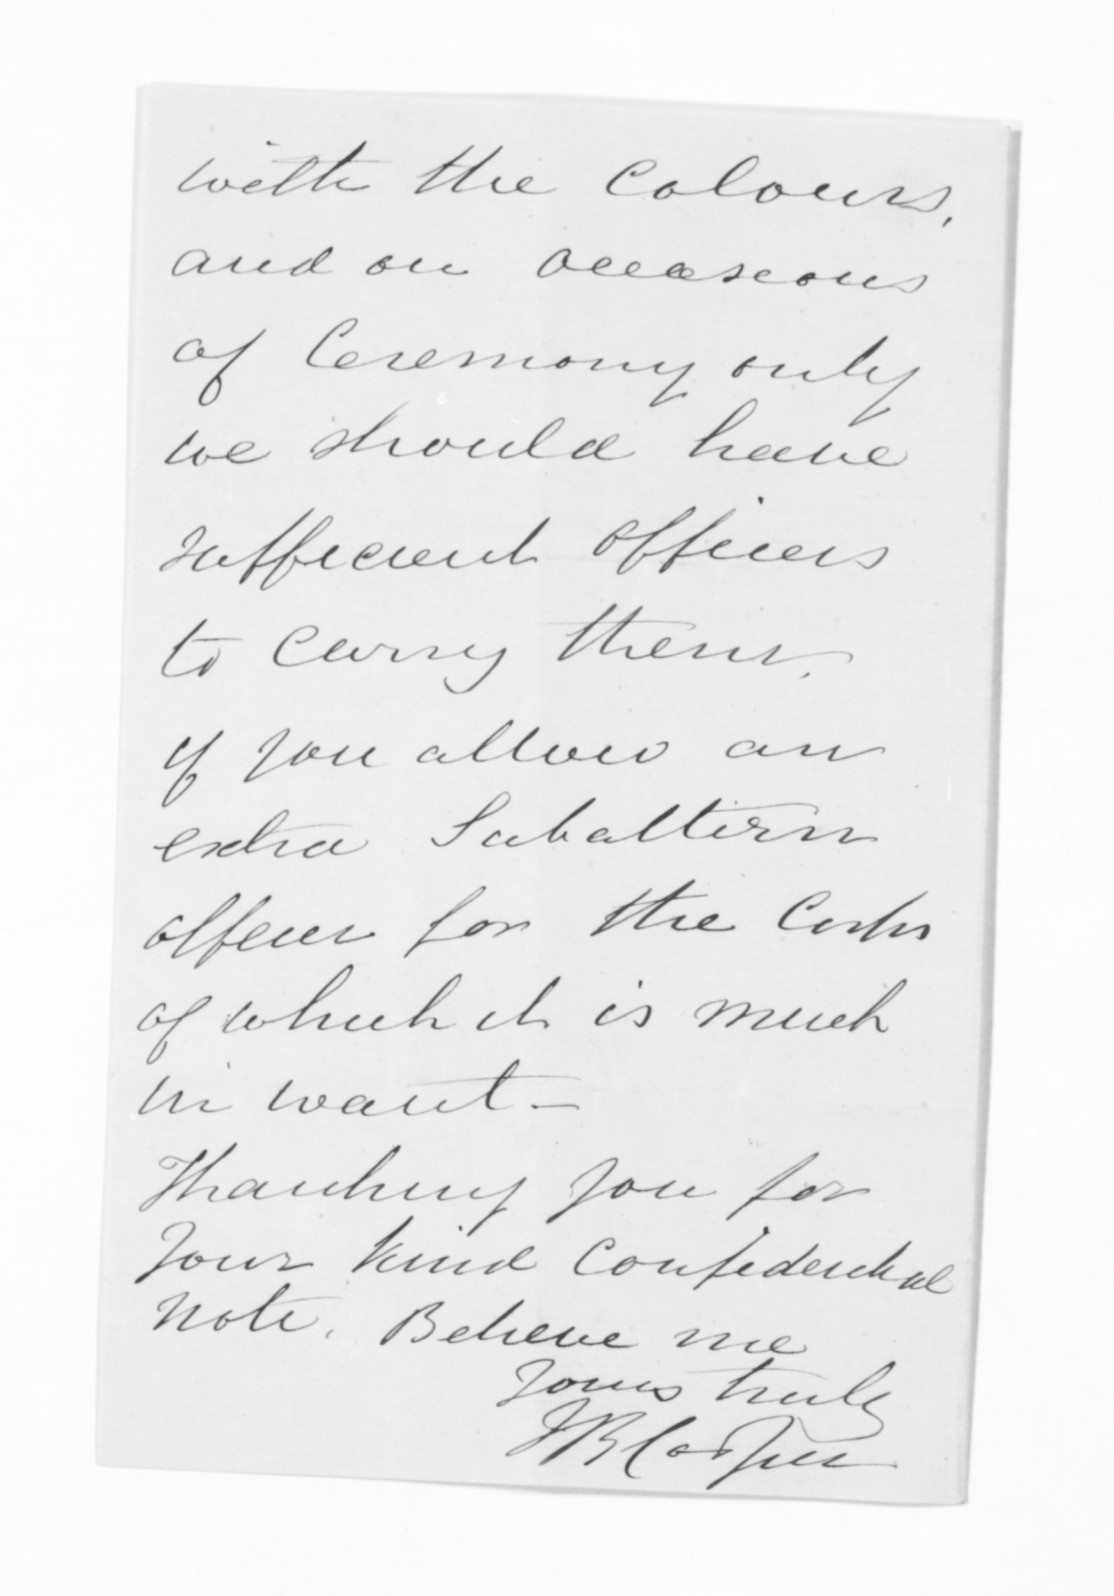 with the Colours,
and on occasions
of Ceremony only
we should have
sufficient officers
to carry them,
if you allow an
extra Subaltern
officer for the Corps
of which it is much
in want –
Thanking you for
your kind Confidential
note. Believe me
yours truly
JB